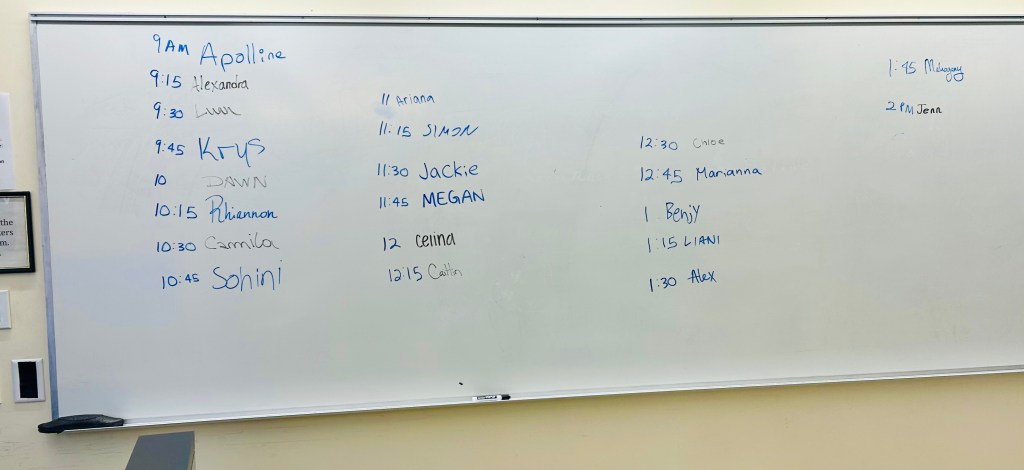 9AM Apolline
9:15 Alexandra
9:30
9:45 Krys
10 DAWN
10:15 Rhiannon
10:30 Camila
10:45 Sohini
11 Ariana
11:15 SIMON
11:30 Jackie
11:45 MEGAN
12 celina
12:15 Caitlin
12:30 Chloe
12:45 Marianna
1 Benjy
1:15 LIANI
1:30 Alex
1:45 Mahogany
2PM Jenn
the
ers
m.